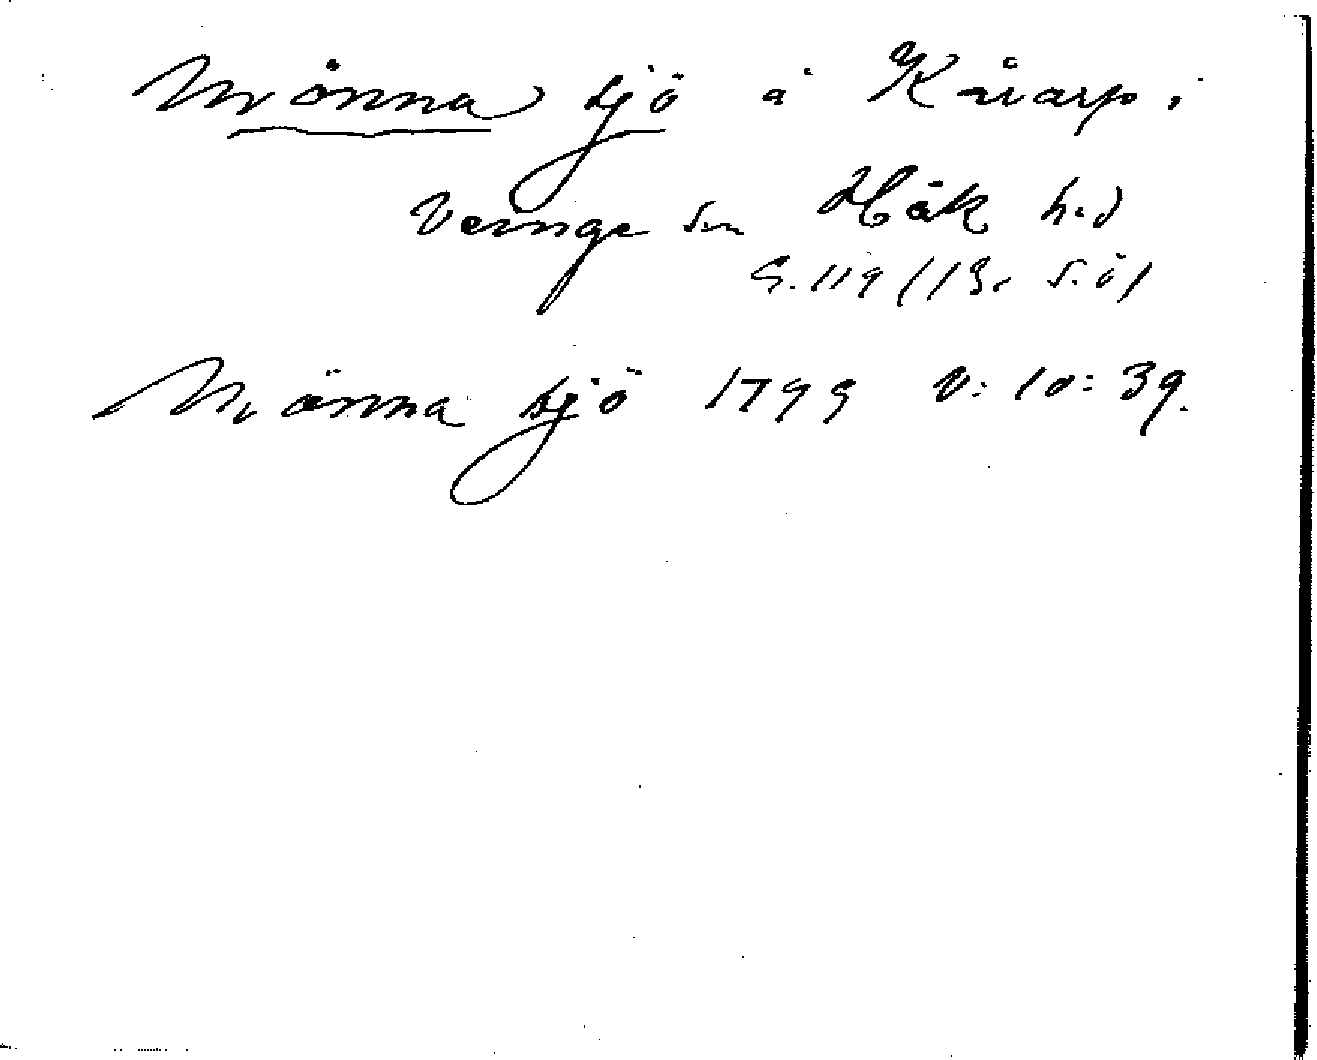 Mönna sjö å Kåarp i
Veinge sn Höks h.d
G. 119 (13. S.Ö)
Mönna sjö 1799 V: 10: 39.